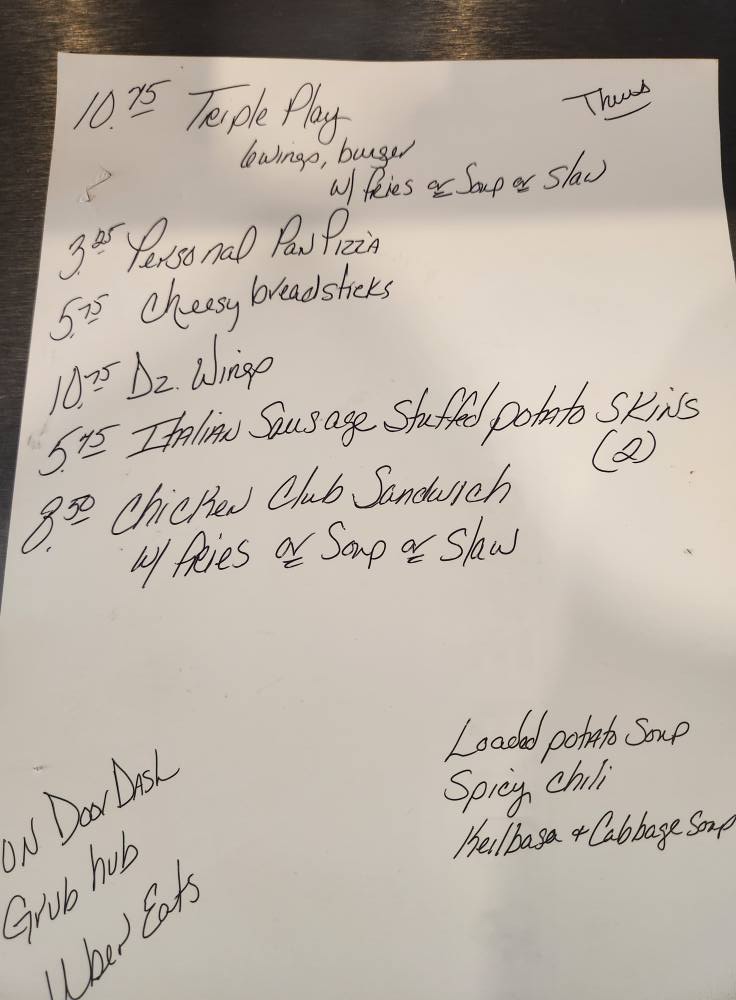 Thurs
10.75 Triple Play
6 wings, burger
w/ Fries or Soup or Slaw
3.25 Personal Pan Pizza
5.75 Cheesy breadsticks
10.75 Dz. Wings
5.75 Italian Sausage Stuffed potato Skins
(2)
8.50 Chicken Club Sandwich
w/ Fries or Soup or Slaw
Loaded potato Soup
Spicy Chili
Keilbasa & Cabbage Soup
ON Door Dash
Grub hub
Uber Eats